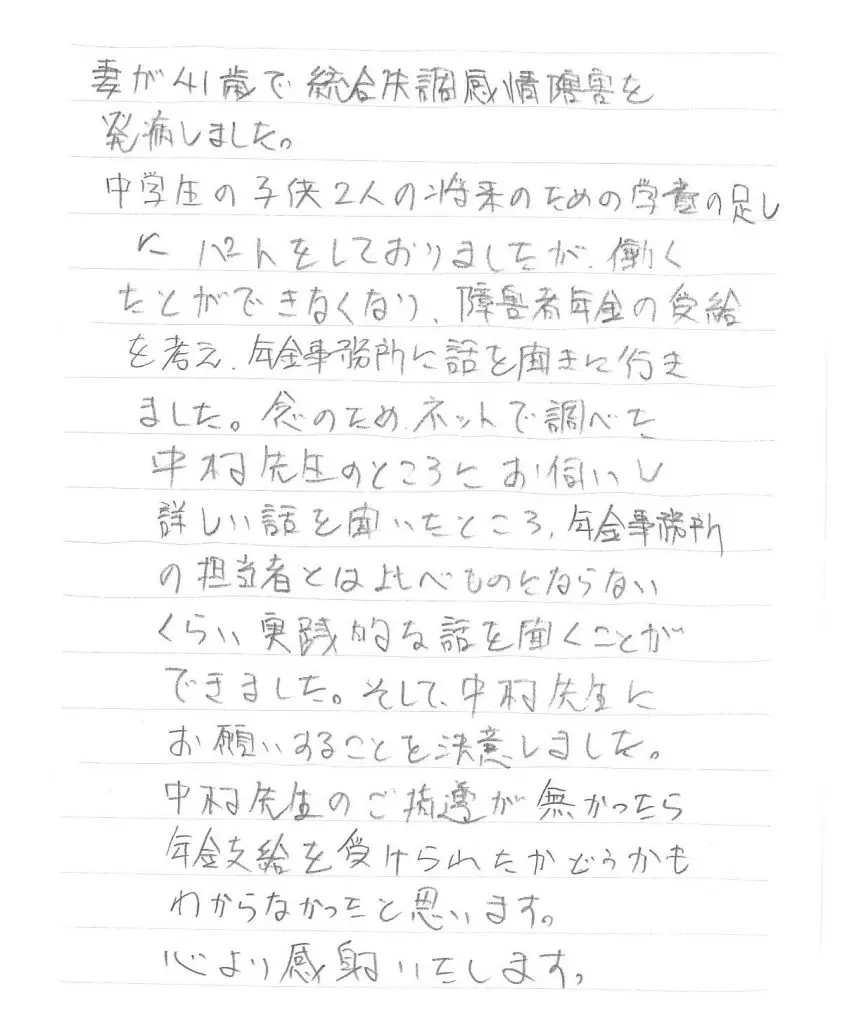 妻が41歳で統合失調感情障害を
発病しました。
中学生の子供2人の将来のための学費の足し
に パートをしておりましたが、働く
ことができなくなり、障害者年金の受給
を考え、年金事務所に話を聞きに行き
ました。念のため、ネットで調べた
中村先生のところにお伺いし
詳しい話を聞いたところ、年金事務所
の担当者とは比べものにならない
くらい実践的な話を聞くことが
できました。そして、中村先生に
お願いすることを決意しました。
中村先生のご指導が無かったら
年金支給を受けられたかどうかも
わからなかったと思います。
心より感謝いたします。